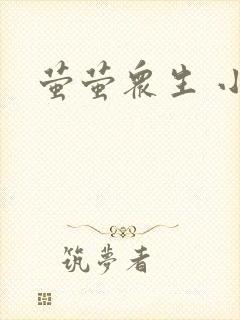 萤萤众生 小
筑梦者